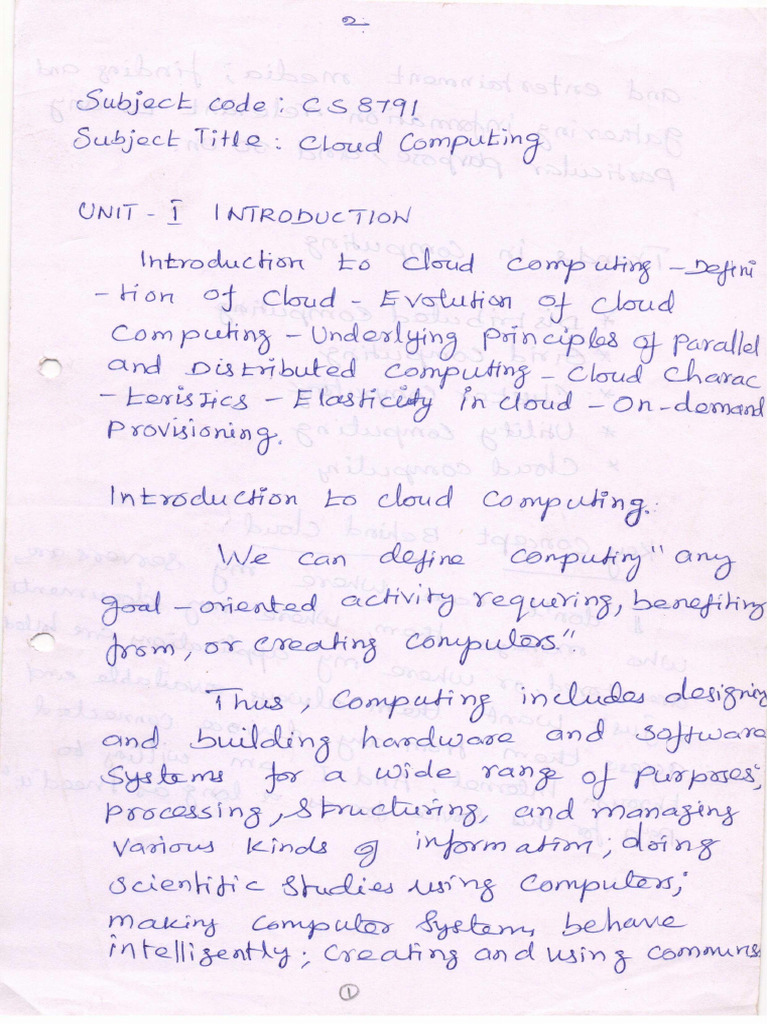 2.
Subject code: CS8791
Subject Title: Cloud Computing
UNIT - I INTRODUCTION
Introduction to cloud computing - Defini
-tion of Cloud - Evolution of Cloud
Computing - Underlying Principles of Parallel
and Distributed Computing - Cloud Charac
-teristics - Elasticity in cloud - On-demand
Provisioning.
Introduction to cloud computing:
We can define computing "any
goal-oriented activity requiring, benefiting
from, or creating computers".
Thus, Computing includes designing
and building hardware and software
Systems for a wide range of purposes;
processing, structuring, and managing
various kinds of information; doing
scientific studies using computers;
making computer systems behave
intelligently; creating and using communi
1